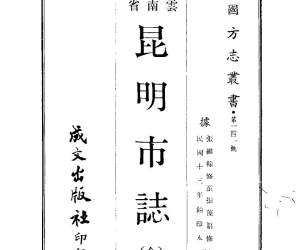 國方志叢書·第一四一號
據
張維翰修童振藻纂修
民國十三年鉛印本
雲南省
昆明市誌
(全)
成文出版社印